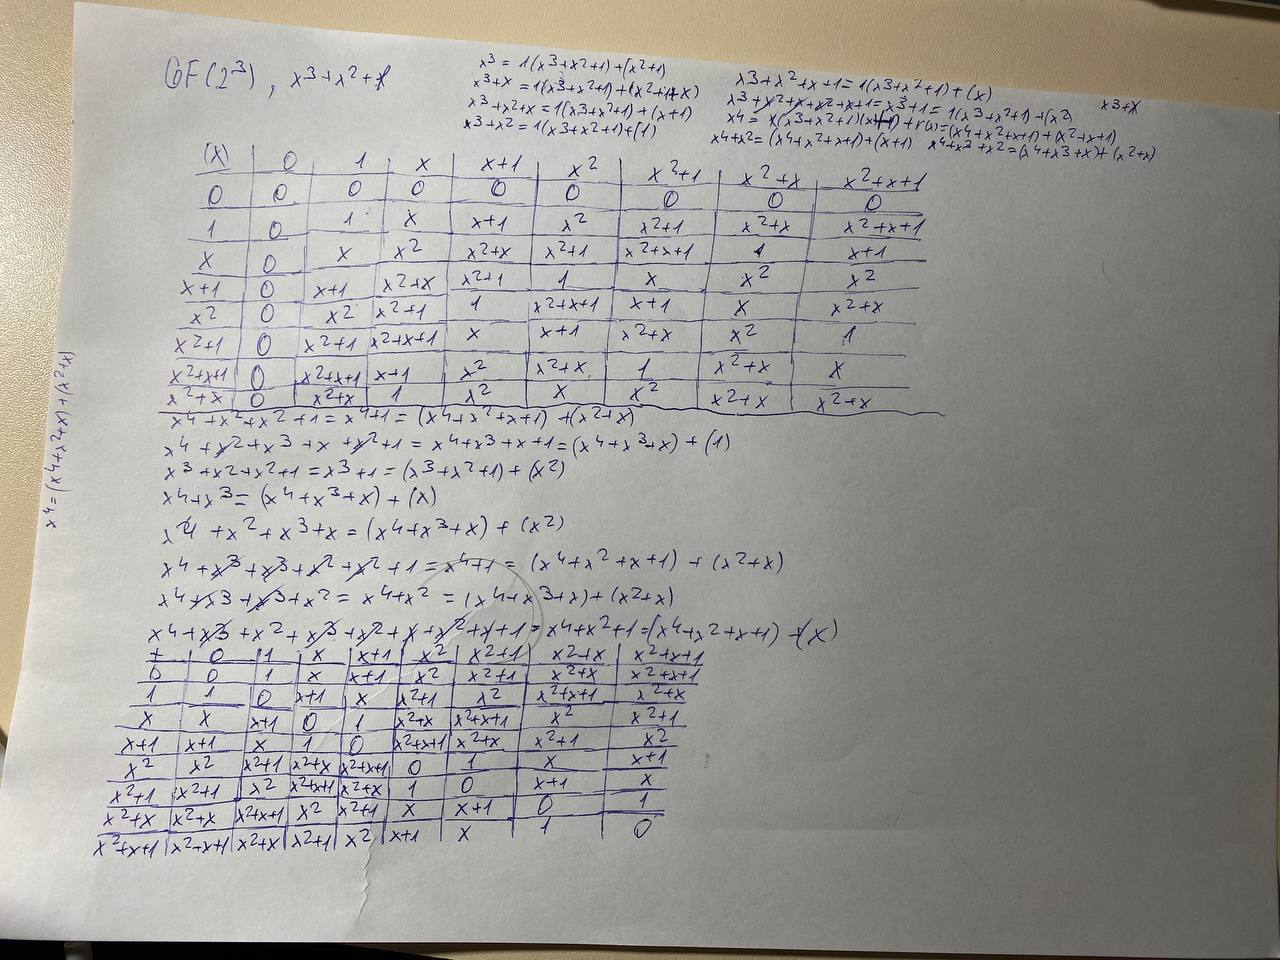 GF(2³), x³+x²+1
x³ = 1(x³+x²+1)+(x²+1)
x³+x = 1(x³+x²+1)+(x²+1+x)
x³+x²+x = 1(x³+x²+1)+(x+1)
x³+x² = 1(x³+x²+1)+(1)
x³+x²+x+1 = 1(x³+x²+1)+(x)
x³+x²+x+x²+x+1 = x³+1 = 1(x³+x²+1)+(x²)
x⁴ = (x⁴+x²+x+1)+(x²+x+1)
x⁴+x² = (x⁴+x²+x+1)+(x+1) x⁴+x³+x² = (x⁴+x³+x)+(x²+x)
x³+x
(x) 0 1 x x+1 x² x²+1 x²+x x²+x+1
0 0 0 0 0 0 0 0 0
1 0 1 x x+1 x² x²+1 x²+x x²+x+1
x 0 x x² x²+x x²+1 x²+x+1 1 x+1
x+1 0 x+1 x²+x x²+1 1 x x² x²
x² 0 x² x²+1 1 x²+x+1 x+1 x x²+x
x²+1 0 x²+1 x²+x+1 x x+1 x²+x x² 1
x²+x+1 0 x²+x+1 x+1 x² x²+x 1 x²+x x
x²+x 0 x²+x 1 x² x x² x²+x x²+x
x⁴+x²+x²+1 = x⁴+1 = (x⁴+x²+x+1)+(x²+x)
x⁴+x²+x³+x+x²+1 = x⁴+x³+x+1 = (x⁴+x³+x)+(1)
x³+x²+x²+1 = x³+1 = (x³+x²+1)+(x²)
x⁴+x³ = (x⁴+x³+x)+(x)
x⁴+x²+x³+x = (x⁴+x³+x)+(x²)
x⁴+x³+x³+x²+x²+1 = x⁴+1 = (x⁴+x²+x+1)+(x²+x)
x⁴+x³+x³+x² = x⁴+x² = (x⁴+x³+x)+(x²+x)
x⁴+x³+x²+x³+x²+x+x²+x+1 = x⁴+x²+1 = (x⁴+x²+x+1)+(x)
x⁴ = (x⁴+x²+x)+(x²+x)
+ 0 1 x x+1 x² x²+1 x²+x x²+x+1
0 0 1 x x+1 x² x²+1 x²+x x²+x+1
1 1 0 x+1 x x²+1 x² x²+x+1 x²+x
x x x+1 0 1 x²+x x²+x+1 x² x²+1
x+1 x+1 x 1 0 x²+x+1 x²+x x²+1 x²
x² x² x²+1 x²+x x²+x+1 0 1 x x+1
x²+1 x²+1 x² x²+x+1 x²+x 1 0 x+1 x
x²+x x²+x x²+x+1 x² x²+1 x x+1 0 1
x²+x+1 x²+x+1 x²+x x²+1 x² x+1 x 1 0